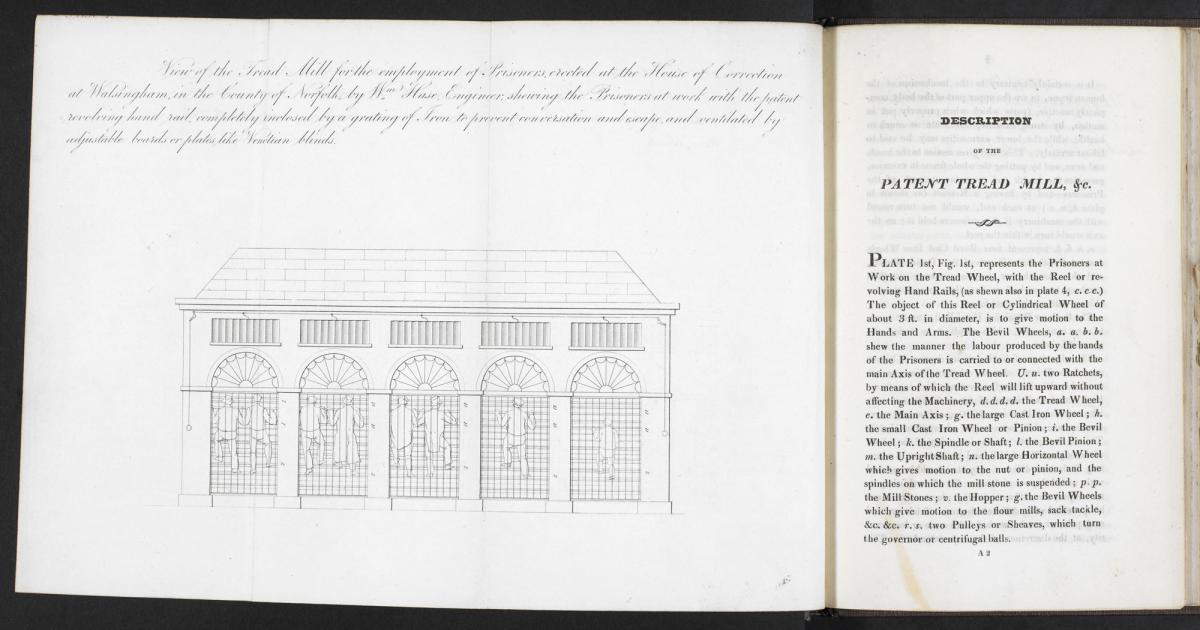 View of the Tread Mill for the employment of Prisoners, erected at the House of Correction
at Walsingham, in the County of Norfolk, by Wm. Hase, Engineer, shewing the Prisoners at work with the patent
revolving hand rail, completely inclosed by a grating of Iron to prevent conversation and escape, and ventilated by
adjustable boards or plates like Venetian blinds.
DESCRIPTION
OF THE
PATENT TREAD MILL, &c.
PLATE 1st, Fig. 1st, represents the Prisoners at
Work on the Tread Wheel, with the Reel or re-
volving Hand Rails, (as shewn also in plate 4, c. c c.)
The object of this Reel or Cylindrical Wheel of
about 3 ft. in diameter, is to give motion to the
Hands and Arms. The Bevil Wheels, a. a. b. b.
shew the manner the labour produced by the hands
of the Prisoners is carried to or connected with the
main Axis of the Tread Wheel. U. u. two Ratchets,
by means of which the Reel will lift upward without
affecting the Machinery, d. d. d. d. the Tread Wheel,
e. the Main Axis; g. the large Cast Iron Wheel; h.
the small Cast Iron Wheel or Pinion; i. the Bevil
Wheel; k. the Spindle or Shaft; l. the Bevil Pinion;
m. the Upright Shaft; n. the large Horizontal Wheel
which gives motion to the nut or pinion, and the
spindles on which the mill stone is suspended; p. p.
the Mill Stones; v. the Hopper; g. the Bevil Wheels
which give motion to the flour mills, sack tackle,
&c. &c. r. s. two Pulleys or Sheaves, which turn
the governor or centrifugal balls.
A 2